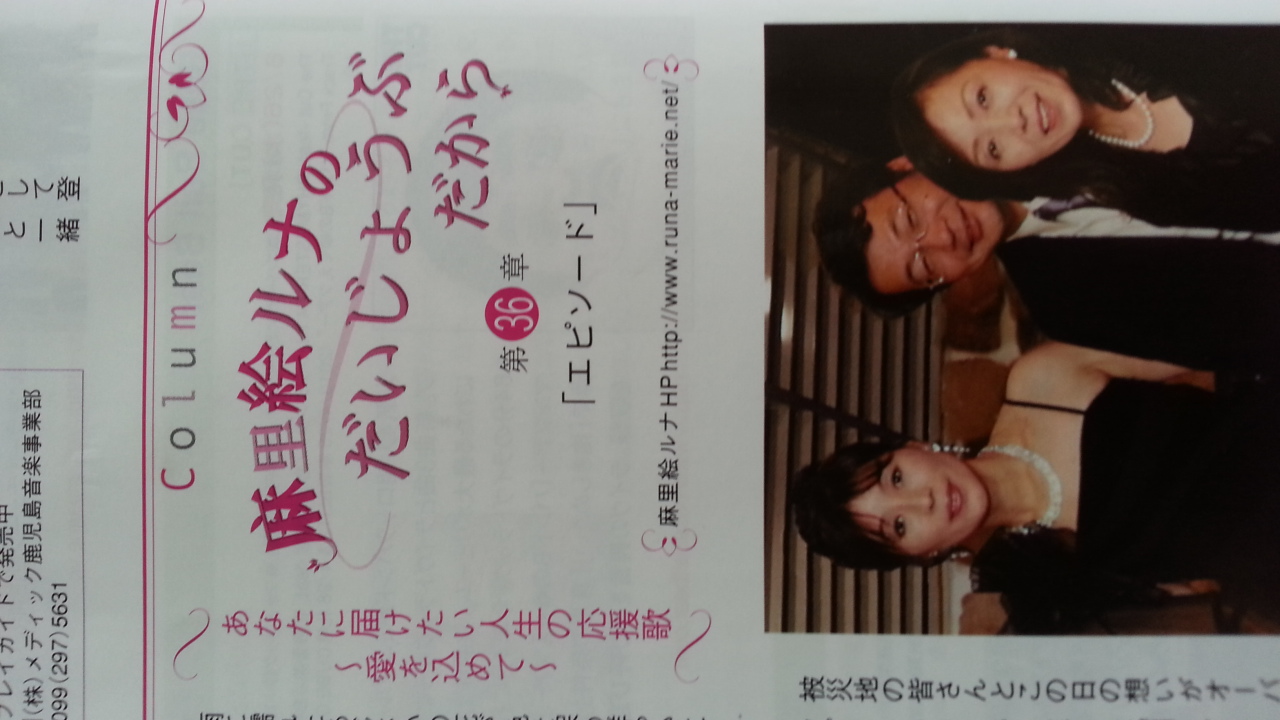 して
と一緒 登
プレイガイドで発売中
(株)メディック鹿児島音楽事業部
099(297)5631
Column
麻里絵ルナの
だいじょうぶ
だから
第36章
「エピソード」
麻里絵ルナHP http://www.runa-marie.net/
あなたに届けたい人生の応援歌
〜愛を込めて〜
被災地の皆さんとこの日の想いがオーバ